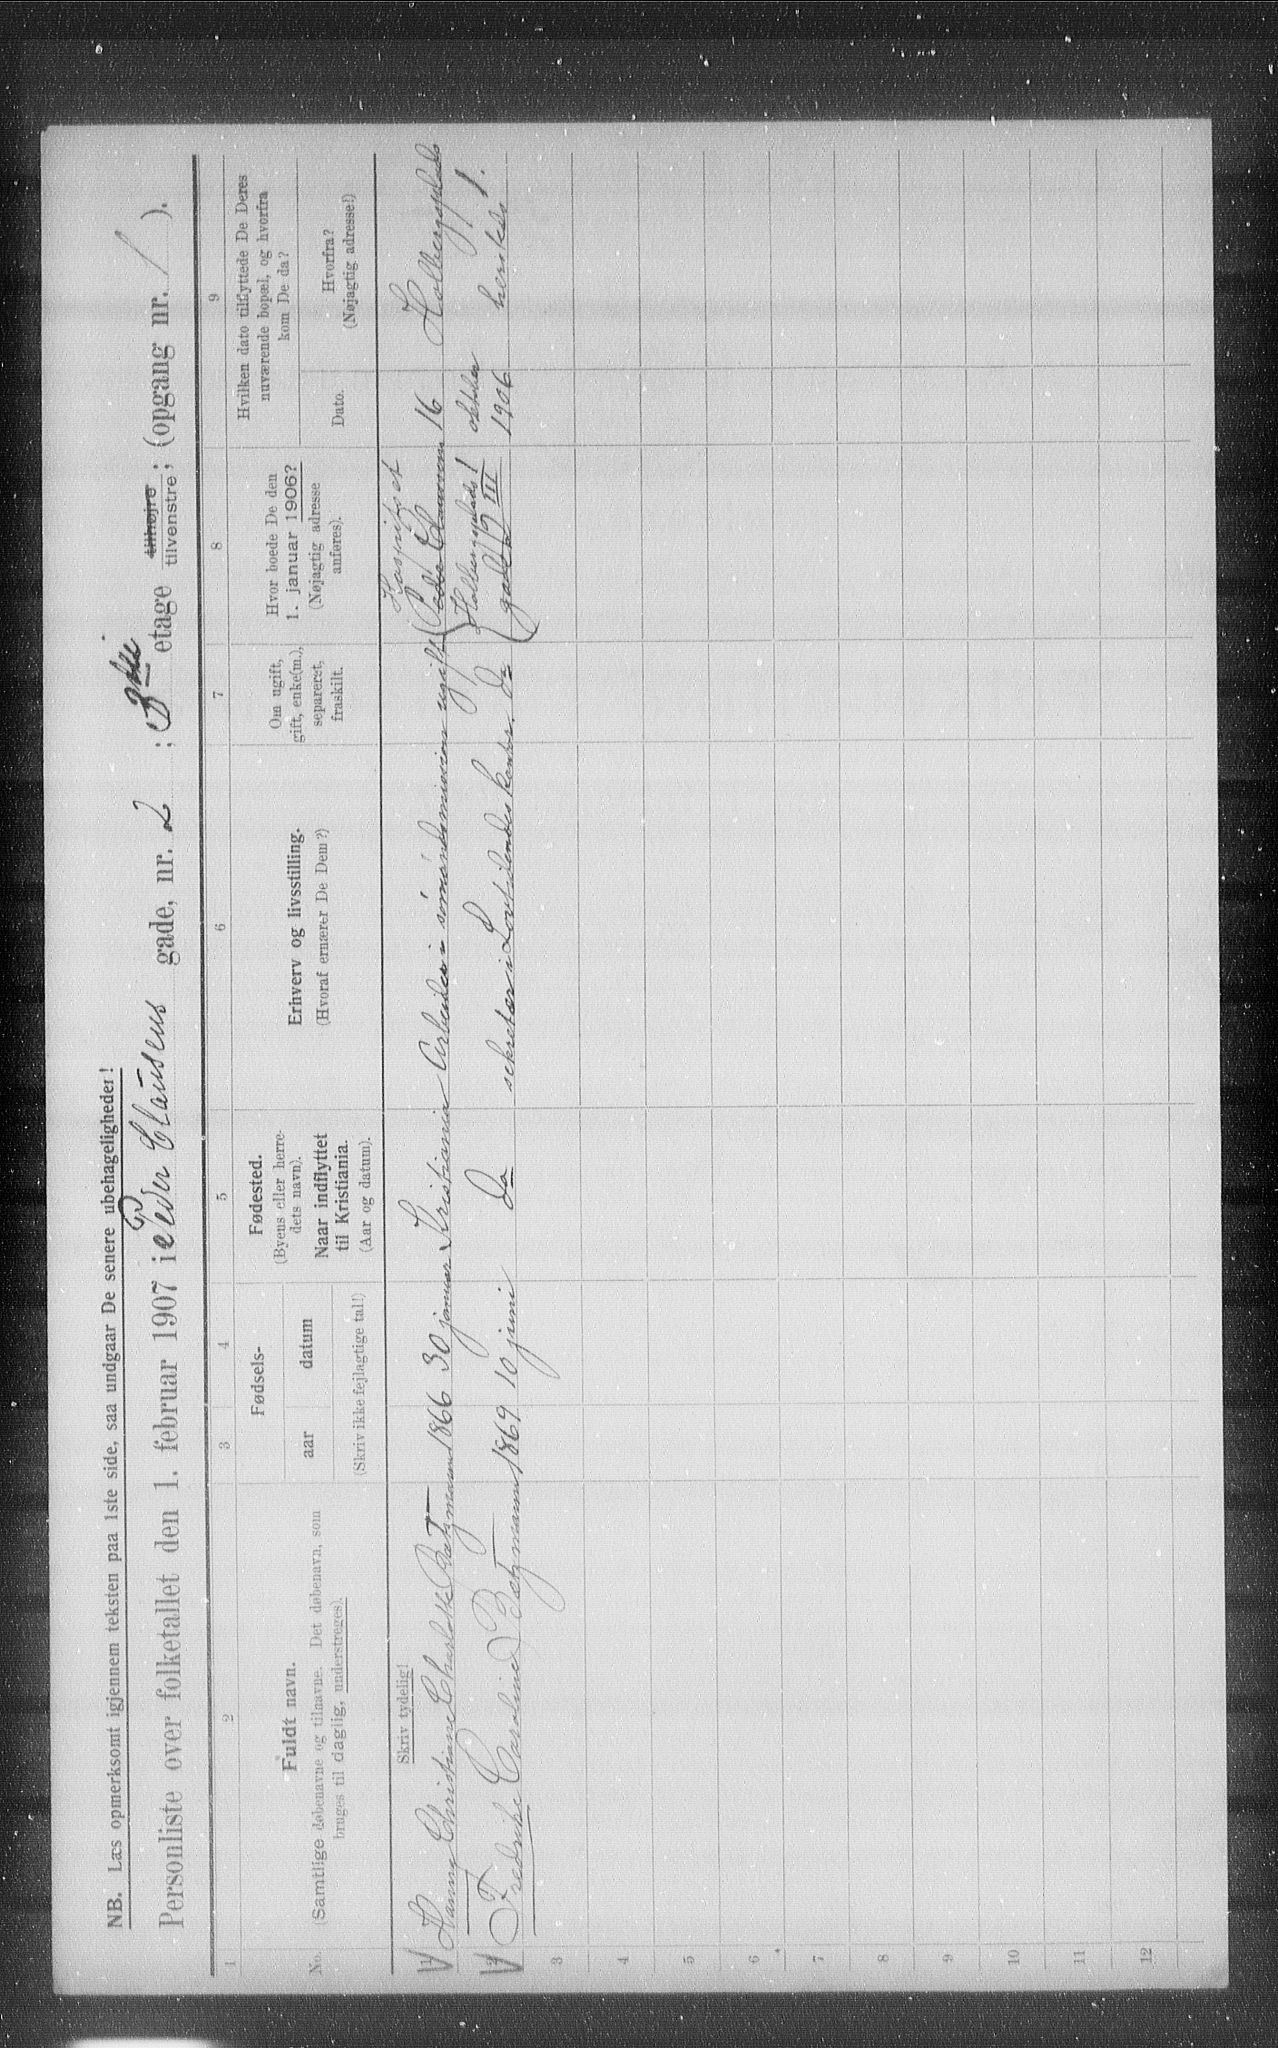 NB. Læs opmerksomt igjennem teksten paa 1ste side, saa undgaar De senere ubehageligheder!
Personliste over folketallet den 1. februar 1907 i Peder Clausens gade, nr. 2 ; 3die etage tilhøjre tilvenstre; (opgang nr. / ).
1 2 3 4 5 6 7 8 9
No.
Fuldt navn.
(Samtlige døbenavne og tilnavne. Det døbenavn, som
bruges til daglig, understreges).
Fødsels-
aar datum
(Skriv ikke fejlagtige tal!)
Fødested.
(Byens eller herre-
dets navn).
Naar indflyttet
til Kristiania.
(Aar og datum).
Erhverv og livsstilling.
(Hvoraf ernærer De Dem?)
Om ugift,
gift, enke(m.),
separeret,
fraskilt.
Hvor boede De den
1. januar 1906?
(Nøjagtig adresse
anføres).
Hvilken dato tilflyttede De Deres
nuværende bopæl, og hvorfra
kom De da?
Dato.
Hvorfra?
(Nøjagtig adresse!)
Skriv tydelig!
1 Hanna Christiane Charlotte 1866 30 januar Kristiania ugift 16
Fredrikke Caroline 1869 10 juni Do sekretær i Do
Holbergsplads 1
III
oktober
1906
1.
3
4
5
6
7
8
9
10
11
12